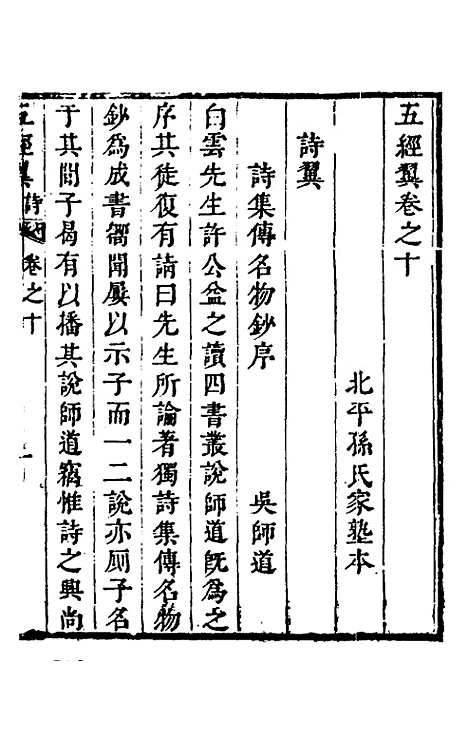 五經翼卷之十
北平孫氏家塾本
詩翼
詩集傳名物鈔序　吳師道
白雲先生許公益之讀四書叢說師道旣爲之
序其徒復有請曰先生所論著獨詩集傳名物
鈔爲成書嚮聞屢以示子而一二說亦厠子名
于其閒子曷有以播其說師道竊惟詩之興尚
五經翼 詩 卷之十